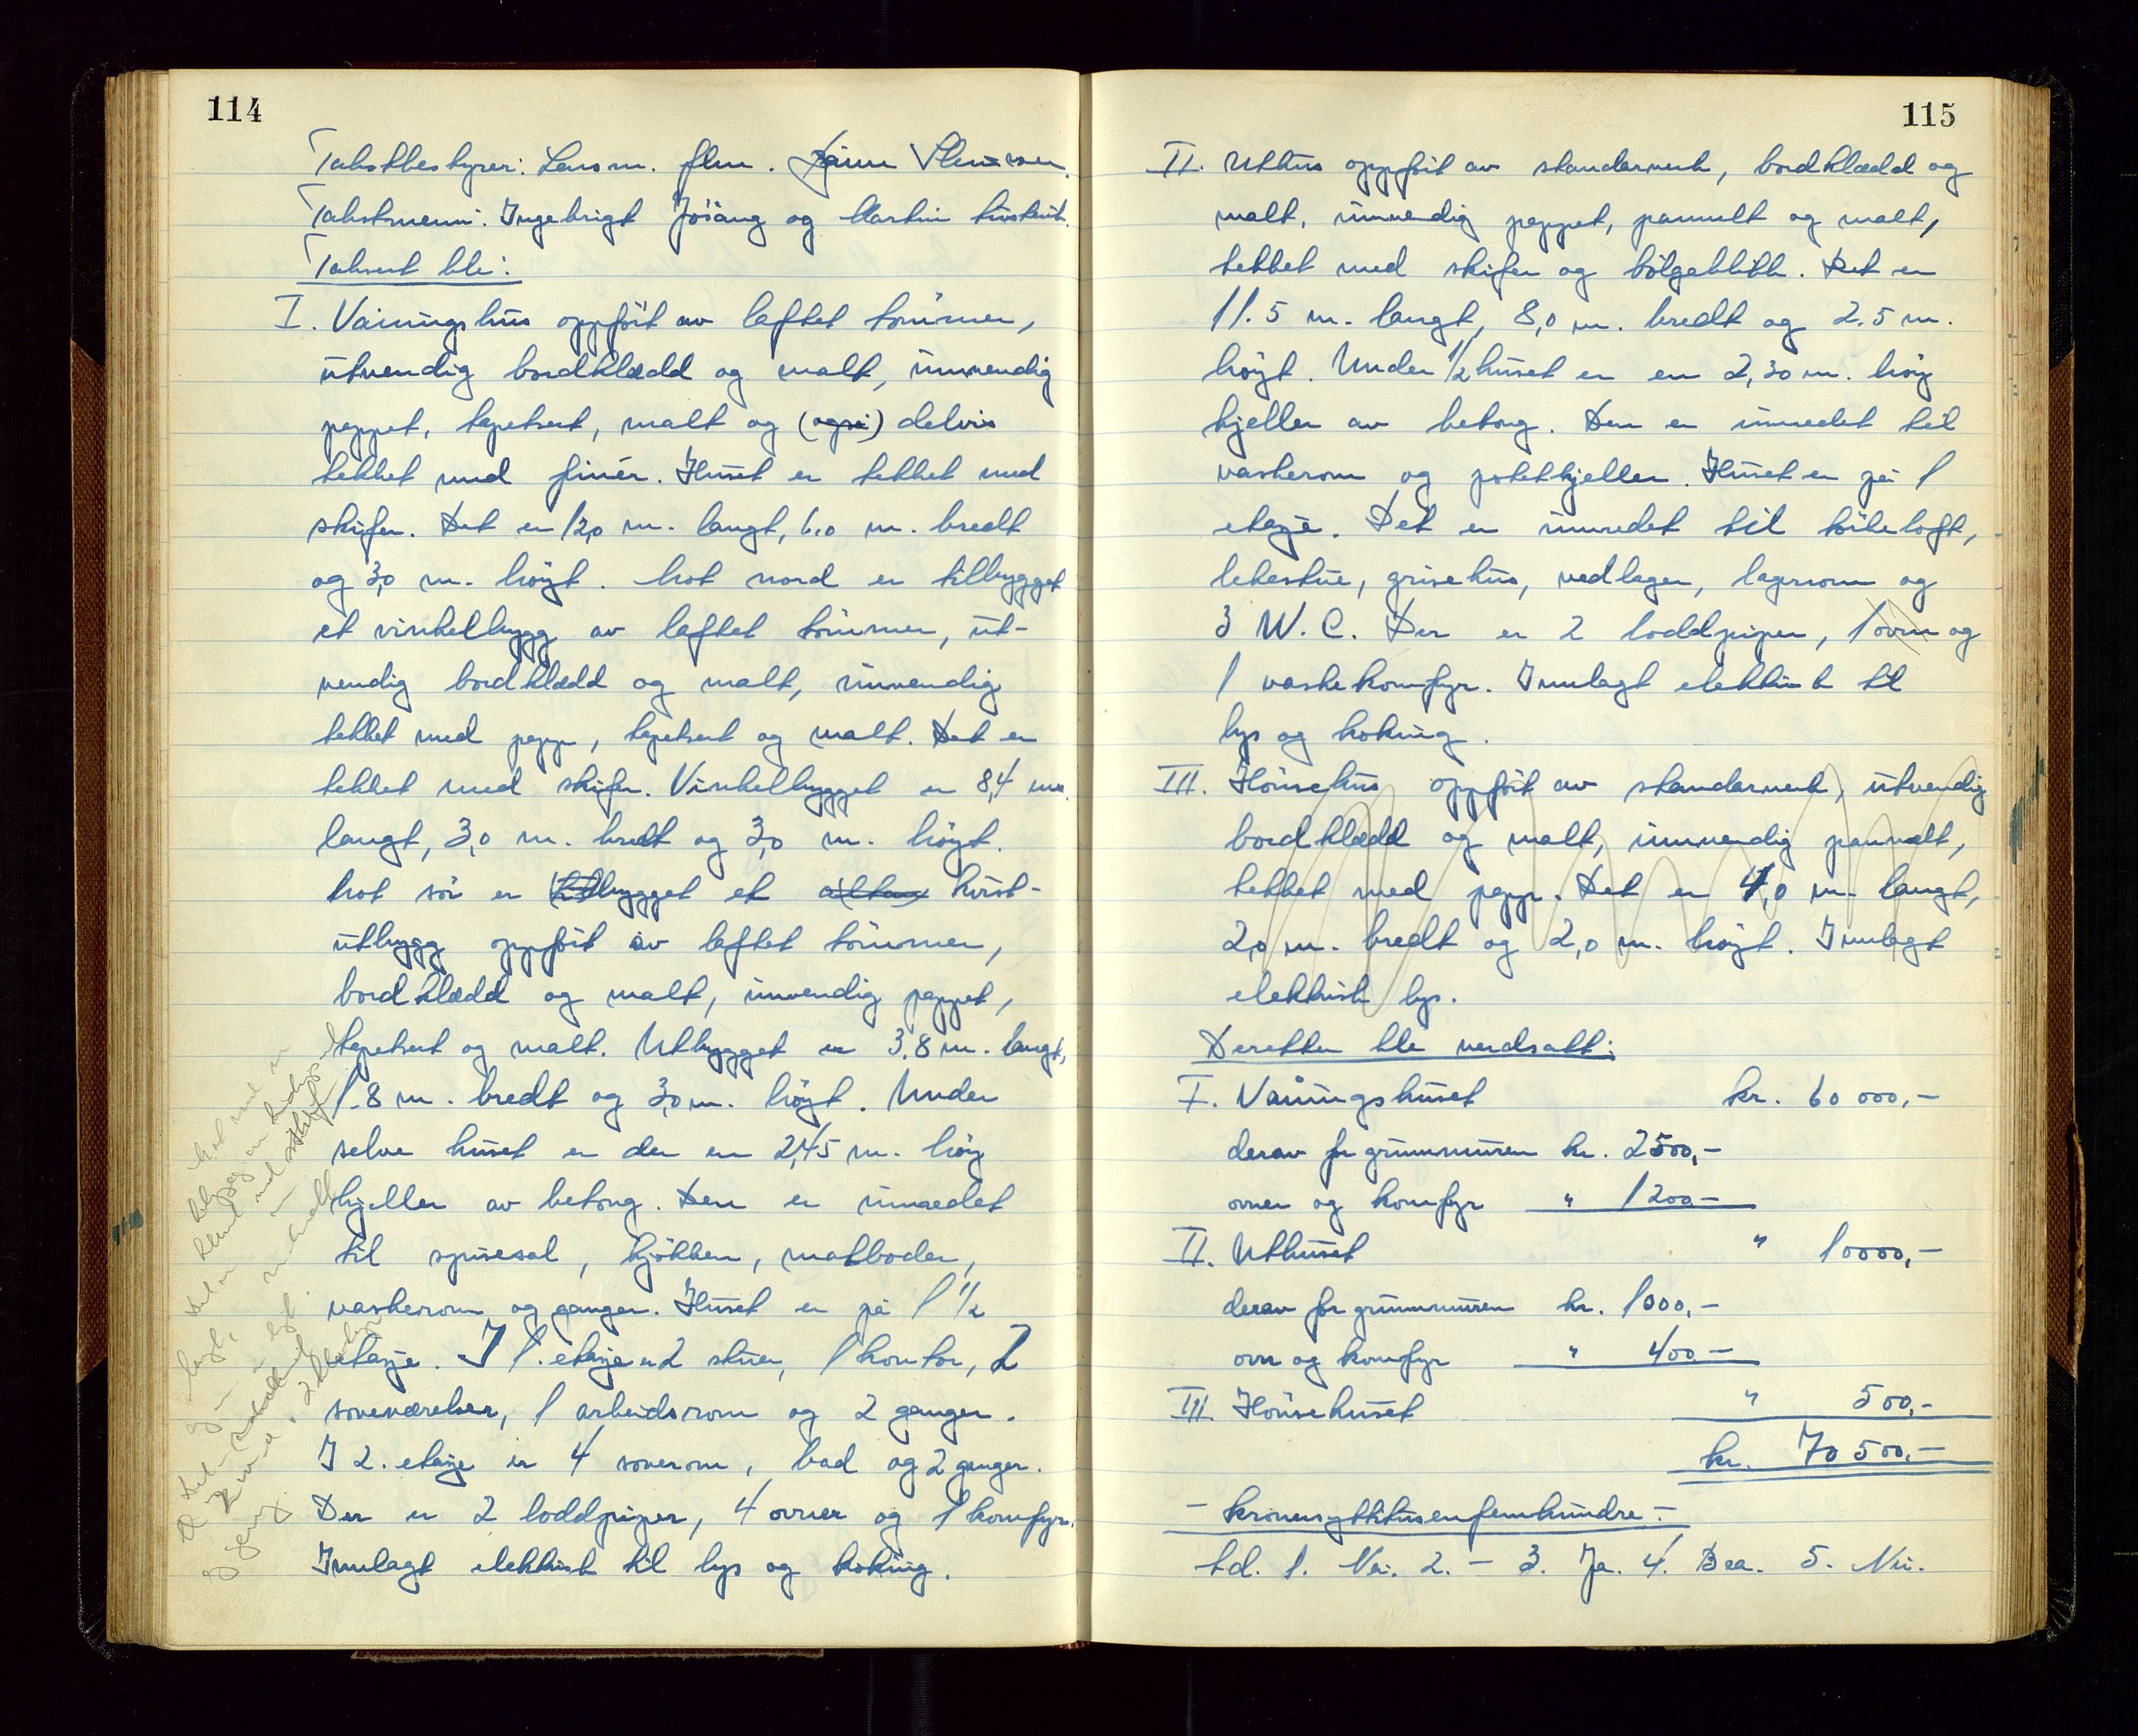 114
Takstbestyrer: Lensm. flm.
Takstmenn: Ingebrigt Jøsang og Martin
Taksert ble:
I. Våningshus oppført av laftet tømmer,
utvendig bordklædd og malt, innvendig
pappet, tapetsert, malt og (også) delvis
tekket med finér. Huset er tekket med
skifer. Det er 12,0 m. langt, 6,0 m. bredt
og 3,0 m. høyt. Mot nord er tilbygget
et vinkelbygg av laftet tømmer, ut-
vendig bordklædd og malt, innvendig
tekket med papp, tapetsert og malt. Det er
tekket med skifer. Vinkelbygget er 8,4 m.
langt, 3,0 m. bredt og 3,0 m. høyt.
Mot sør er tilbygget et altan kvist-
utbygg oppført av laftet tømmer,
bordklædd og malt, innvendig pappet,
tapetsert og malt. Utbygget er 3,8 m. langt,
1.8 m. bredt og 3,0 m. høyt. Under
selve huset er der en 2,45 m. høy
kjeller av betong. Den er innredet
til spisesal, kjøkken, matboder,
vaskerom og ganger. Huset er på 1 1/2
etasje. I 1. etasje er 2 stuer, 1 kontor, 2
soveværelser, 1 arbeidsrom og 2 ganger.
I 2. etasje er 4 soverom, bad og 2 ganger.
Der er 2 loddpiper, 4 ovner og 1 komfyr.
Innlagt elektrisk til lys og koking.
115
II. Uthus oppført av standerverk, bordklædd og
malt, innvendig pappet, panelt og malt,
tekket med skifer og bølgeblikk. Det er
11.5 m. langt, 8,0 m. bredt og 2.5 m.
høyt. Under 1/2 huset er en 2,30 m. høy
kjeller av betong. Den er innredet til
vaskerom og potetkjeller. Huset er på 1
etasje. Det er innredet til tørkeloft,
lekestue, grisehus, vedlager, lagerrom og
3 W.C. Der er 2 loddpiper, 1 ovn og
1 vaskekomfyr. Innlagt elektrisk til
lys og koking.
III. Hønsehus oppført av standerverk, utvendig
bordklædd og malt, innvendig pannelt,
tekket med papp. Det er 4,0 m. langt,
2,0 m. bredt og 2,0 m. høyt. Innlagt
elektrisk lys.
Deretter ble verdsatt:
I. Våningshuset kr. 60 000,-
derav for grunnmuren kr. 2500,-
ovner og komfyr " 1200-
II. Uthuset " 10000,-
derav for grunnmuren kr. 1000,-
ovn og komfyr " 400-
III. Hønsehuset " 500,-
kr. 70 500,-
- kronersyttitusenfemhundre -
td. 1. Nei. 2. - 3. Ja. 4. Bra. 5. Nei.